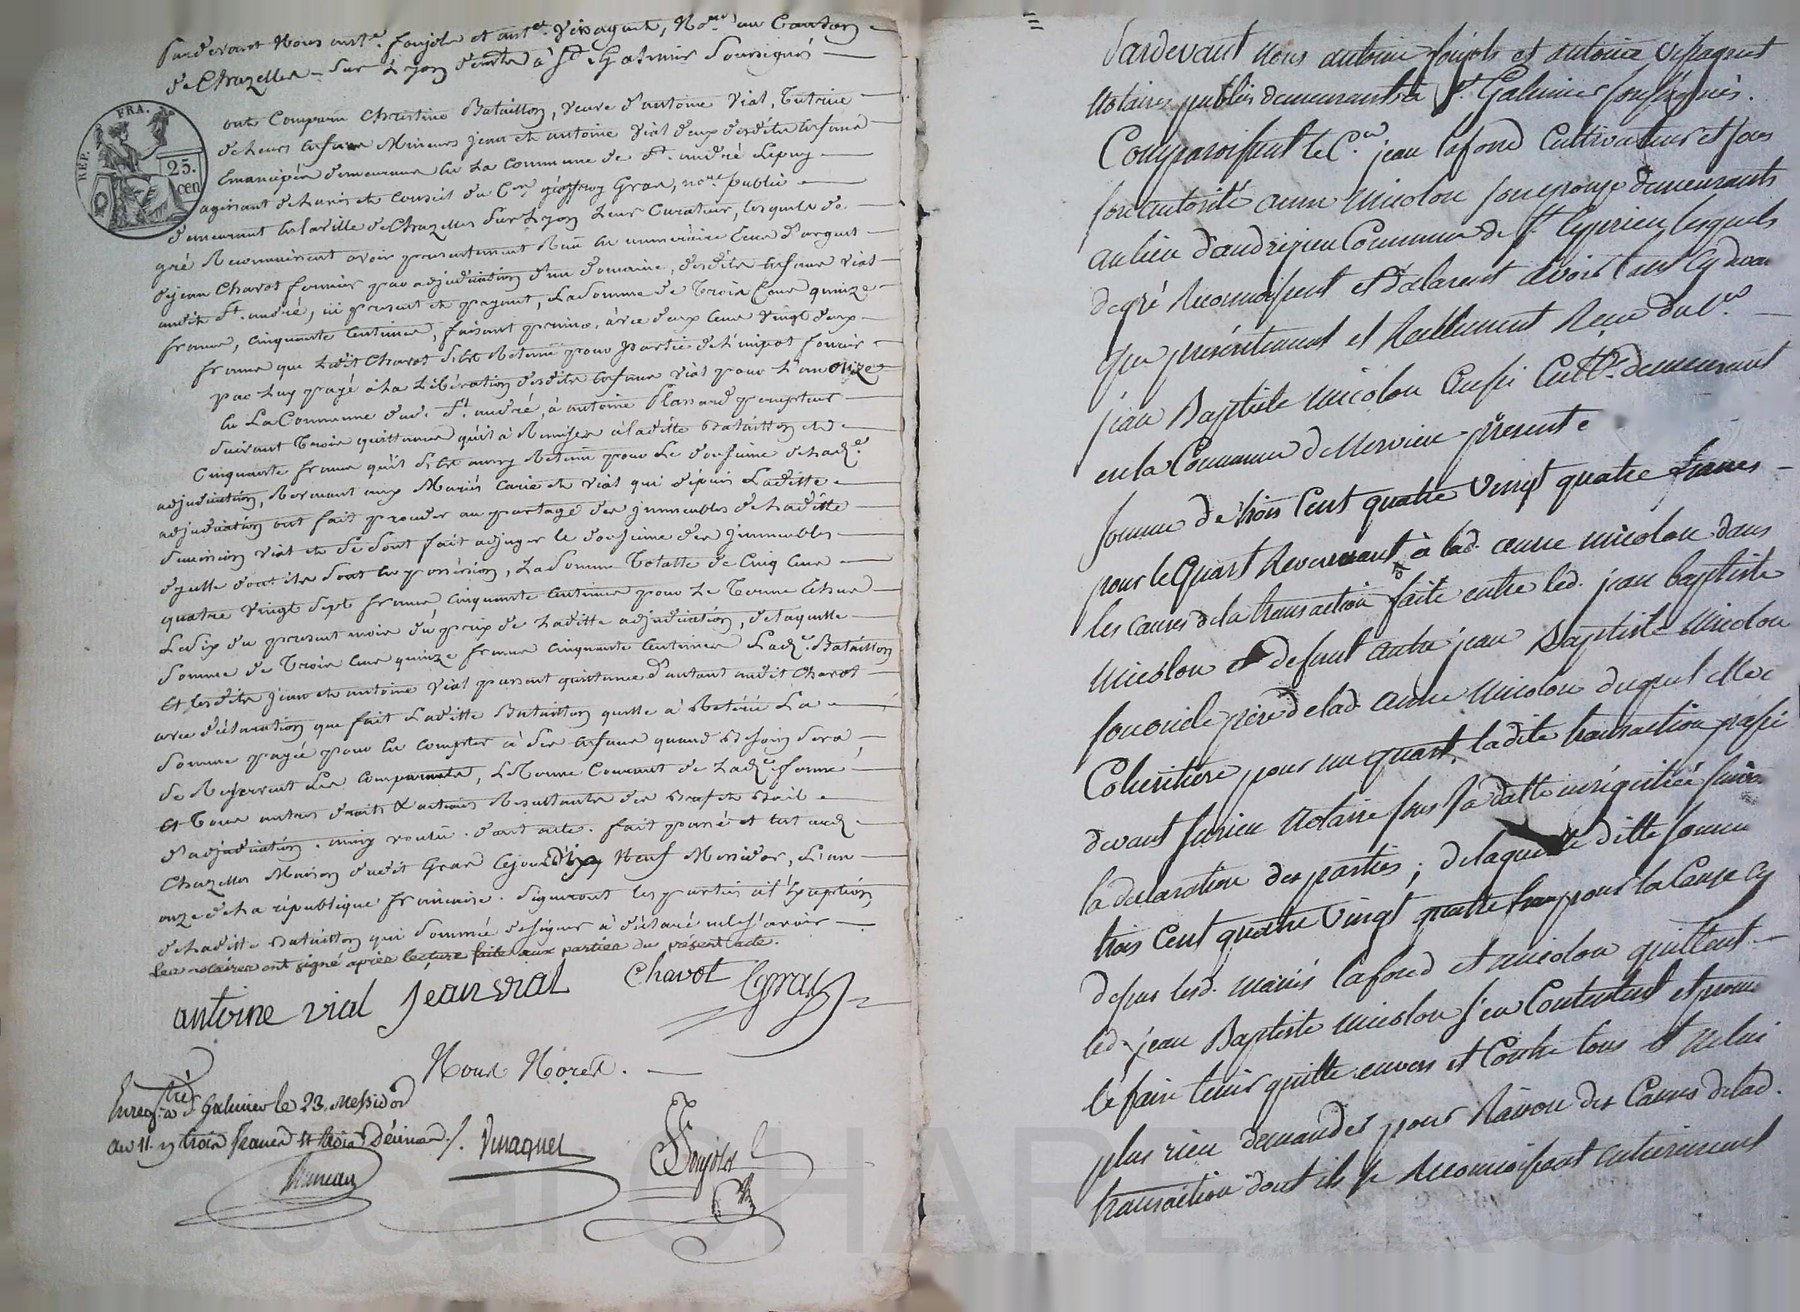 Pardevant Nous ant.e foujols et ant.e Viraguet, No.res au Canton
de Chazelles sur Lyon demts à St Galmier Soussignés
REP. FRA.
25. cen
ont Comparu Christine Bataillon, veuve d'antoine Vial, Tutrice
de leurs Enfans Mineurs jean et antoine Vial deux desdits Enfans
Emancipés demeurant en la Commune de St. andré Lepuy
agissant de l'avis et Conseil du C.en geoffroy Gras, no.re public
demeurant en la ville de Chazelles sur Lyon leur Curateur, lesquels de
gré Reconnaissent avoir présentement Reçu en numéraire Ecus d'argent
de jean Chavot fermier par adjudication d'un domaine, desdits Enfans Vial
audit St. andré, ici présent et payant, la Somme de Trois Cens quinze
francs, cinquante Centimes, faisant avec deux Cens vingt deux
francs que ledit Chavot s'est Retenu pour partie de l'impot foncier
par luy payé à la Libération desdits Enfans Vial pour l'an onze
en la Commune dud. St. andré, à antoine Plassard percepteur
suivant Trois quittances qu'il a Remises à ladite Bataillon et de
Cinquante francs qu'il s'est aussy Retenu pour Le douzième de lad.e
adjudication, Revenant aux Mariés et Vial qui depuis Ladite
adjudication ont fait procéder au partage des jmmeubles de ladite
succession Vial et se sont fait adjuger le douzieme des jmmeubles
d'ycelle dont ils sont en possession, La somme Totalle de Cinq Cens
quatre vingt sept francs, cinquante Centimes pour Le Terme Echu
Le six du présent mois du prix de Ladite adjudication, de laquelle
Somme de Trois Cens quinze francs Cinquante Centimes Lad.e Bataillon
Et lesdits jean et antoine Vial passent quittance d'autant audit Chavot
avec déclaration que fait Ladite Bataillon quelle a Retiré La
Somme payée pour en compter à ses Enfans quand Besoin sera,
Se Reservent Les comparants, le Terme Courant de Lad.e ferme
Et Tous autres droits & actions Résultants des Baux de Bail
d'adjudication. ainsy voulu. dont acte. fait passé et lut aud.
Chazelles Maison dudit Gras Cejourd'huy dix Neuf Messidor, L'an
onze de La république française. Signeront les parties à l'Exception
de Ladite Bataillon qui sommée de signer à déclaré ne le savoir
les notaires ont signé après lecture faite aux parties du présent acte.
antoine vial jean vial Chavot Gras
Nous No.res.
Enreg.tré à St Galmier le 23. Messidor
an 11. trois francs
Viraguet
foujols
Pardevant nous antoine foujols et antoine viraguet
Notaires publics demeurants à St. Galmier soussignés.
Comparoissent le C.en jean lafond Cultivateur et sous
son autorité anne micolon son epouse demeurants
au lieu d'andrezieu Commune de St. Cyprien lesquels
de gré reconnoissent et déclarent avoir tant cy devant
que présentement et Reellement Reçu du C.en
jean Baptiste micolon aussi Cult.r demeurant
en la Commune de present la
somme de trois Cent quatre Vingt quatre francs
pour le quart Revenant à lad. anne micolon dans
les causes de la transaction faite entre led. jean baptiste
micolon et defunt autre jean Baptiste micolon
son oncle père de lad. anne micolon duquel Elle
Cohéritière pour un quart, ladite transaction passé
devant notaire sous sa datte enregistrée suivant
la declaration des parties; de laquelle ditte somme
trois Cent quatre Vingt quatre francs pour la Cause cy
dessus lesd. mariés lafond et micolon quittent
led. jean Baptiste micolon s'en Contentent et promettent
le faire tenir quitte envers et Contre tous et ne lui
plus rien demander pour Raison des Causes de lad.
transaction dont ils se Reconnoissent entierement
Pascal CHARETRON